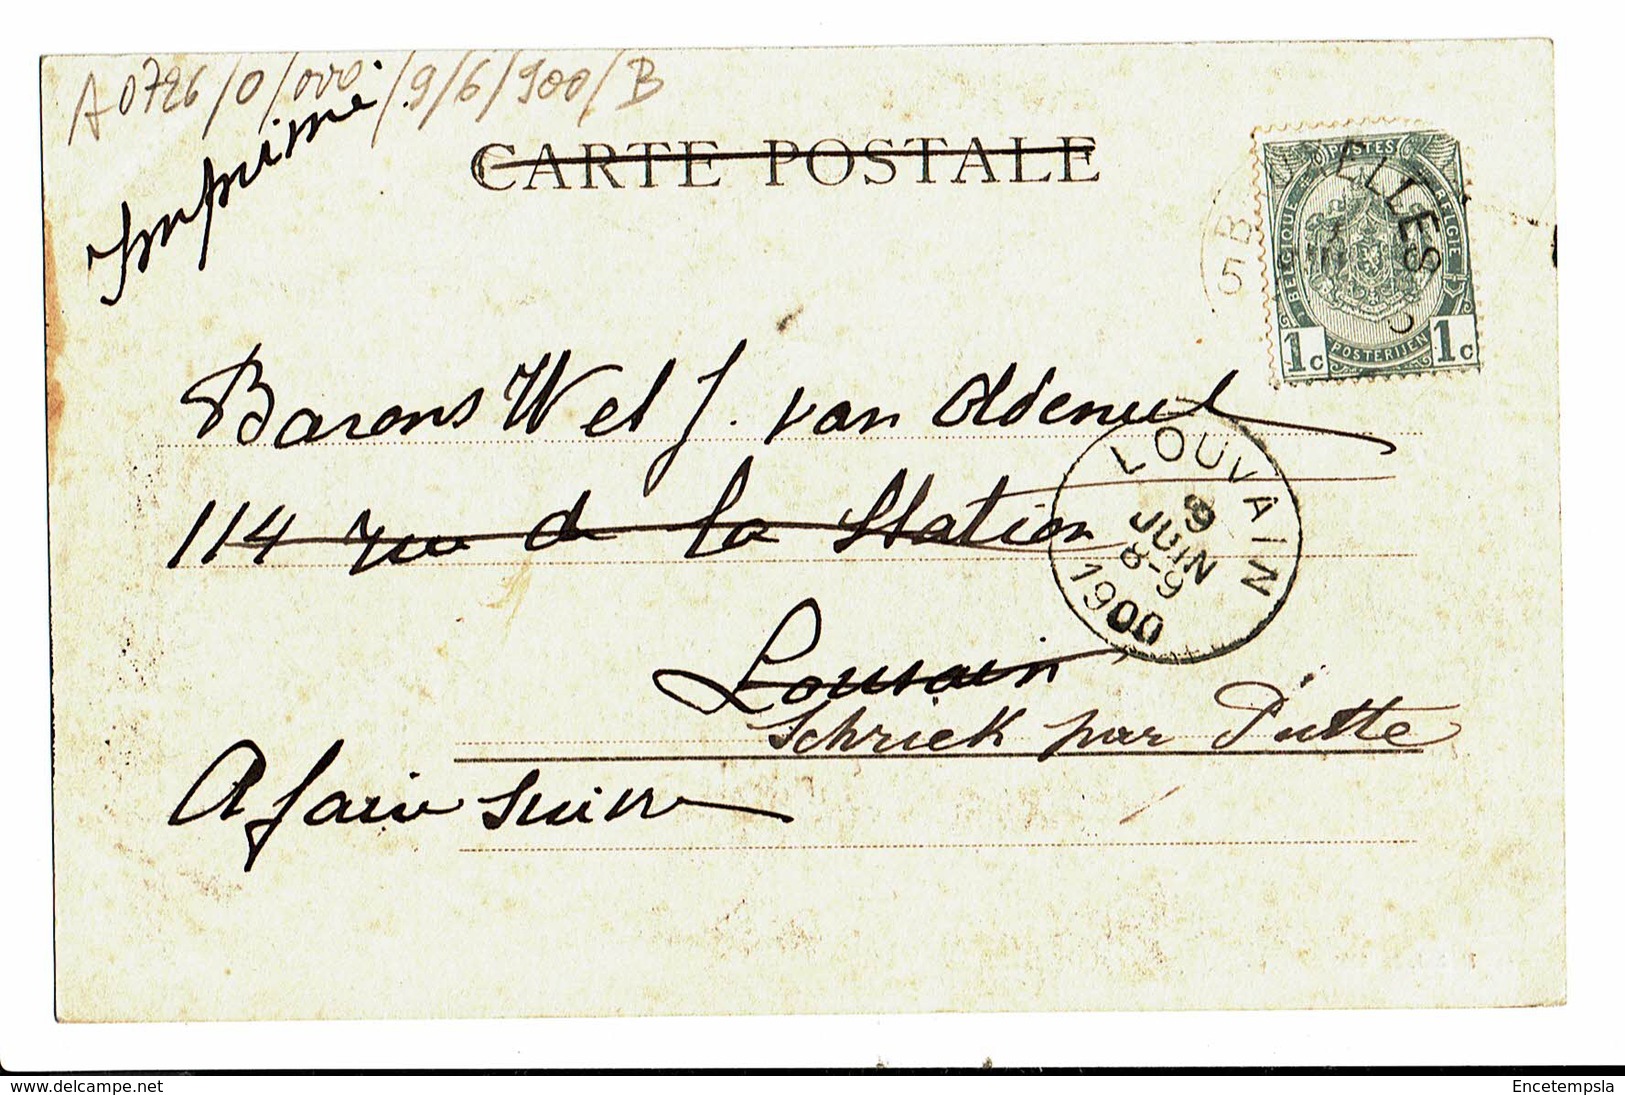 A0726/0/000/9/6/900/B
Imprimé
CARTE POSTALE
BRUXELLES
5
POSTES
BELGIQUE
BELGIË
POSTERIJEN
1c 1c
Barons W et J. van Oldeneel
114 rue de la Station
LOUVAIN
9
JUIN
8-9
1900
Louvain
Schriek par Putte
A faire suivre
www.delcampe.net
Encetempsla